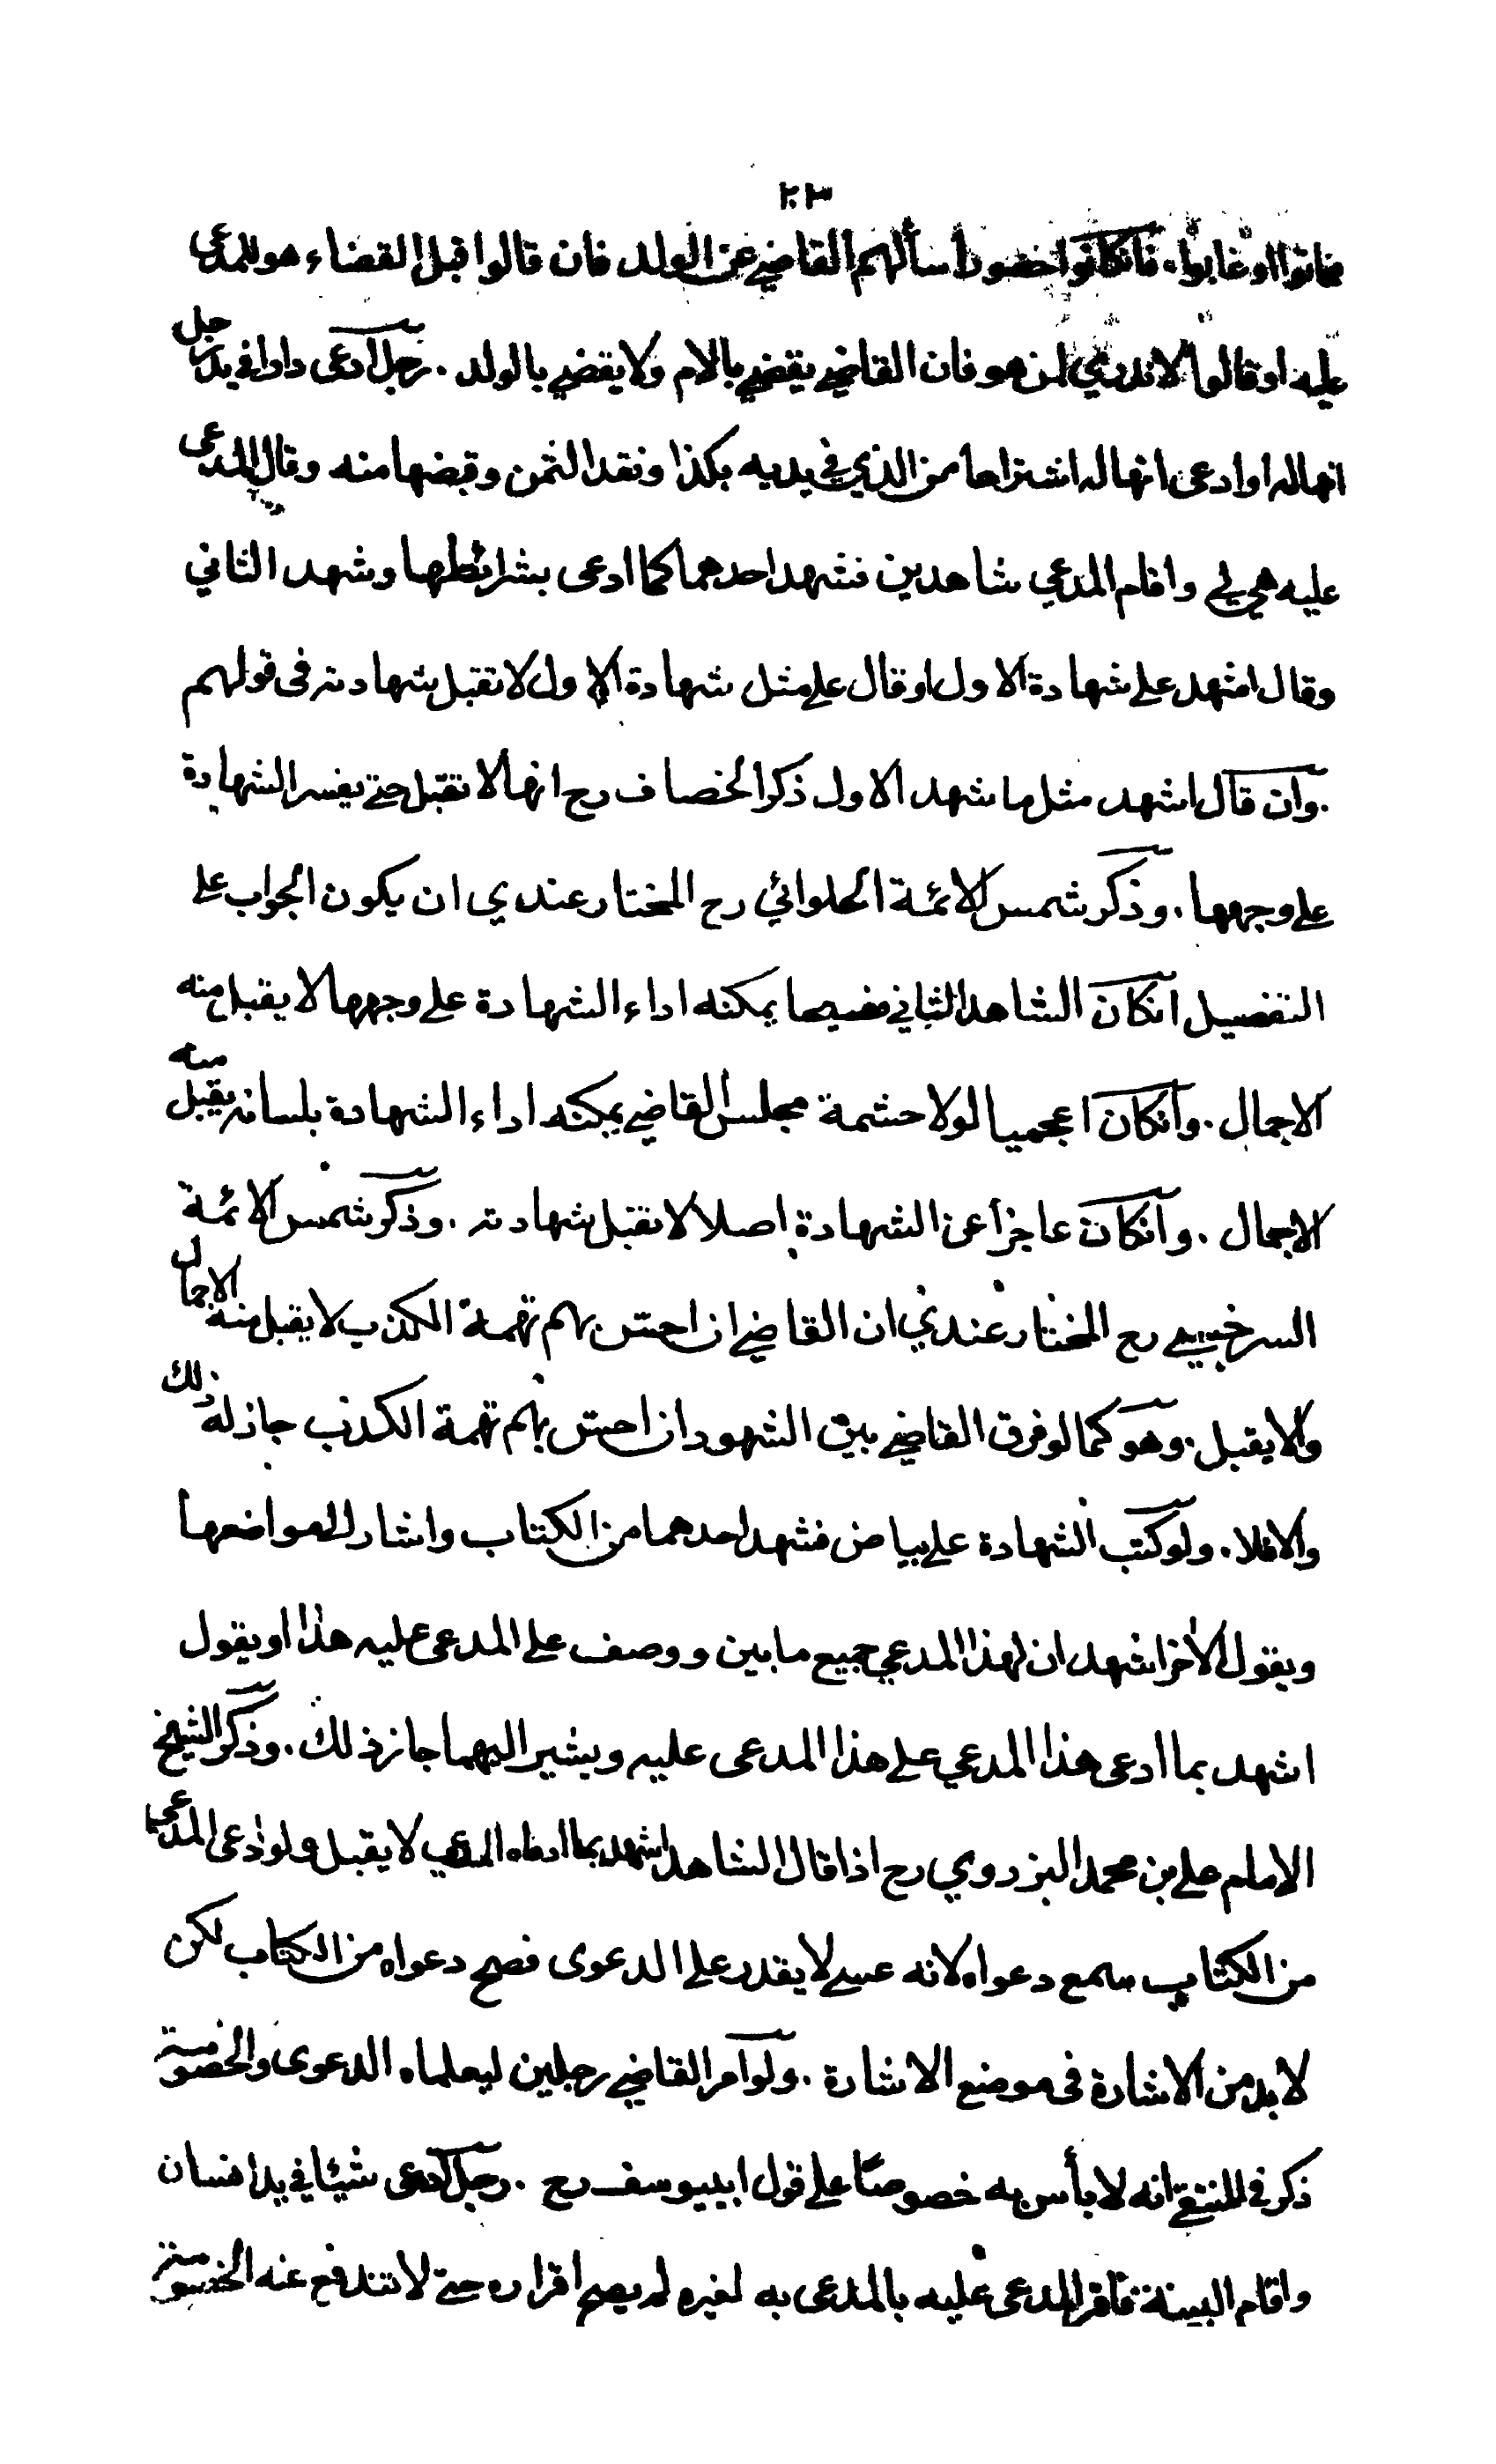 ٢٠٣
ماتوا او غابوا . فانكانوا حضورا سألهم القاضي عن الولد فان قالوا قبل القضاء هو للمدعى
عليه او قالوا لا ندري لمن هو فان القاضي يقضي بالام ولا يقضي بالولد . رجل ادعى دارا في يد رجل
انها له او ادعى انها له اشتراها من الذي في يديه بكذا ونقد الثمن وقبضها منه وقال المدعى
عليه هي لي واقام المدعي شاهدين فشهد احدهما كما ادعى بشرائطها وشهد الثاني
وقال اشهد على شهادة الاول او قال على مثل شهادة الاول لا تقبل شهادته في قولهم
. وان قال اشهد مثل ما شهد الاول ذكر الخصاف رح انها لا تقبل حتى يفسر الشهادة
على وجهها . وذكر شمس الائمة الحلوائي رح المختار عندي ان يكون الجواب على
التفصيل انكان الشاهد الثاني فصيحا يمكنه اداء الشهادة على وجهها لا يقبل منه
الاجمال . وانكان اعجميا لولا حشمة مجلس القاضي يمكنه اداء الشهادة بلسانه يقبل منه
الاجمال . وانكان عاجزا عن الشهادة اصلا لا تقبل شهادته . وذكر شمس الائمة
السرخسي رح المختار عندي ان القاضي ان احس بهم تهمة الكذب لا يقبل منه الاجمال
والا يقبل . وهو كما لو فرق القاضي بين الشهود ان احس بهم تهمة الكذب جاز له ذلك
والا فلا . ولو كتب الشهادة على بياض فشهد احدهما من الكتاب واشار الى مواضعها
ويقول الاخر اشهد ان لهذا المدعي جميع ما بين ووصف على المدعى عليه هذا او يقول
اشهد بما ادعى هذا المدعي على هذا المدعى عليه ويشير اليهما جاز ذلك . وذكر الشيخ
الامام علي بن محمد البزدوي رح اذا قال الشاهد اشهد بما ادعاه المدعي لا يقبل ولو ادعى المدعي
من الكتاب سمع دعواه لانه عسى لا يقدر على الدعوى فصح دعواه من الكتاب لكن
لا بد من الاشارة في موضع الاشارة . ولو امر القاضي رجلين ليعلماه الدعوى والخصومة
ذكر في المنتقى انه لا بأس به خصوصا على قول ابي يوسف رح . رجل ادعى شيئا في يد انسان
واقام البينة فاقر المدعى عليه بالمدعى به لغيره لم يصح اقراره حتى لا تندفع عنه الخصومة